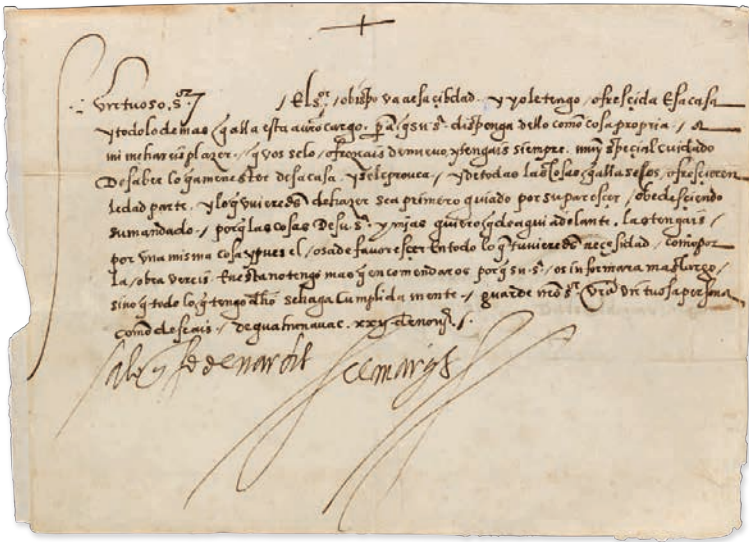 virtuoso s.or / El s.or / obispo va a esa çibdad . y yo le tengo / ofresçida Esa casa
y todo lo demas q̄ alla esta a vr̄o cargo . p̄a q̄ su s.ª disponga dello como cosa propria ./ a
mi me hareis plazer ./ q̄ vos selo / ofrezcais de nuevo y tengais siempre . muy special cuidado
De saber lo q̄ a menester de sa casa . y se le provea ./ y de todas las cosas q̄ alla se los / ofresçieren
le dad parte . y lo q̄ de hazer sea primero guiado por su paresçer / obedesçiendo
su mandado ./ porq̄ las cosas De su s.ª y mias quiero q̄ de aqui adelante . las tengais /
por una misma cosa y pues el / os a de favoresçer En todo lo q̄ neçesidad / como por
la / obra vereis . En esta no tengo mas q̄ encomendaros porq̄ su s.ª / os informara mas largo /
sino q̄ todo lo q̄ tengo dh̄o se haga Cumplida mente ./ guarde nr̄o s.or vr̄a virtuosa persona
como deseais ./ de guahunavac . xxv de /.
El marq̄s